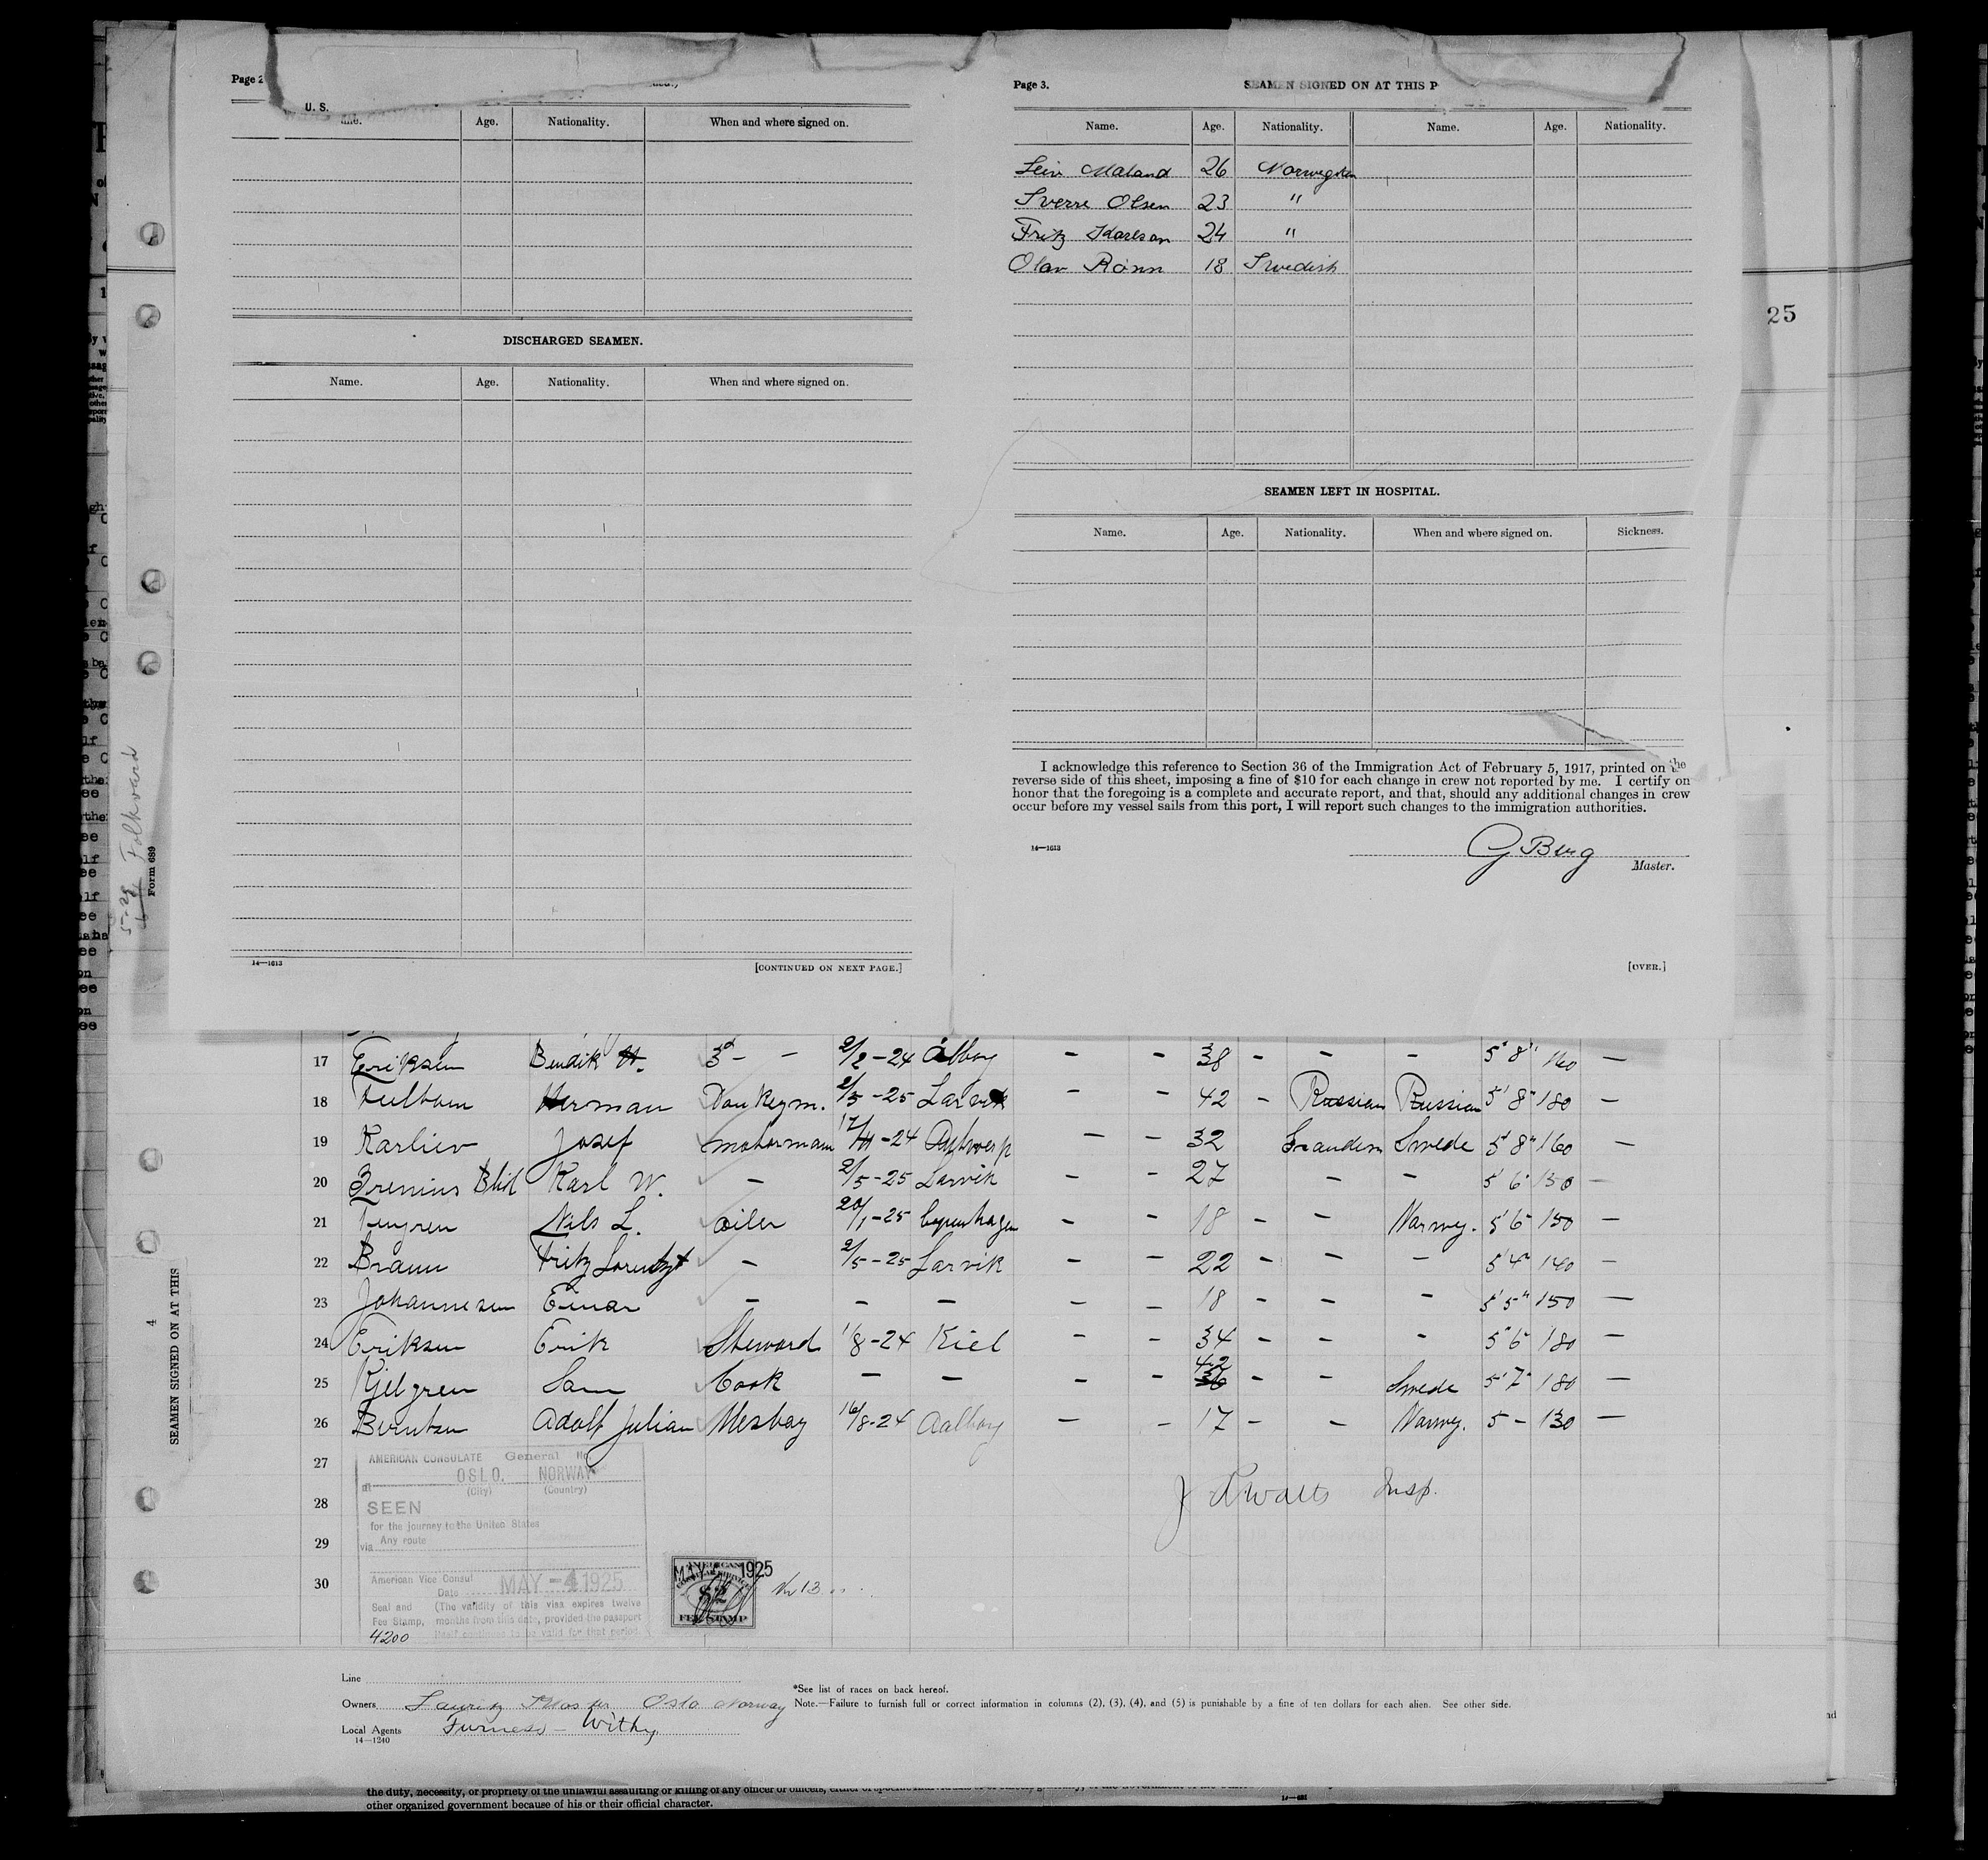 Page 2
U. S.
Age. Nationality. When and where signed on.
DISCHARGED SEAMEN.
Name. Age. Nationality. When and where signed on.
14—1613 [CONTINUED ON NEXT PAGE.]
Page 3. SEAMEN SIGNED ON AT THIS P
Name. Age. Nationality. Name. Age. Nationality.
Maland 26 Norwegian
Sverre Olsen 23 "
Fritz Karlson 24 "
Olav Rönn 18 Swedish
SEAMEN LEFT IN HOSPITAL.
Name. Age. Nationality. When and where signed on. Sickness.
I acknowledge this reference to Section 36 of the Immigration Act of February 5, 1917, printed on the
reverse side of this sheet, imposing a fine of $10 for each change in crew not reported by me. I certify on
honor that the foregoing is a complete and accurate report, and that, should any additional changes in crew
occur before my vessel sails from this port, I will report such changes to the immigration authorities.
14—1613
G Berg
Master.
[OVER.]
25
5-25 Folkvard
Form 689
4
SEAMEN SIGNED ON AT THIS
17 Eriksen Bendik 3d - - 2/2-24 Aalborg - - 38 - - - 5' 8" 160 -
18 Herman Donkeym. 2/5-25 Larvik - - 42 - Russian Russian 5' 8" 180 -
19 Josef motorman 24 Antwerp - - 32 Scandin Swede 5' 8" 160 -
20 Karl W. - 2/5-25 Larvik - 27 - - 5' 6" 150 -
21 Nils L. oiler 20/1-25 Copenhagen - - 18 - - Norwy. 5' 6" 150 -
22 Braun Fritz - 2/5-25 Larvik - - 22 - - - 5' 4" 140 -
23 Johannesen Einar - - - - - 18 - - - 5' 5" 150 -
24 Eriksen Erik Steward 1/8-24 Kiel - - 34 - - - 5' 6" 180 -
25 Kjelgren Cook - - - - 42 - - Swede 5' 7" 180 -
26 Berntsen Adolf Julian Messboy 16/8-24 Aalborg - - 17 - - Norwy. 5 - 130 -
27
28
29
30
AMERICAN CONSULATE General
at OSLO. NORWAY
(City) (Country)
SEEN
for the journey to the United States
via Any route
American Vice Consul
Date MAY -4 1925
Seal and (The validity of this visa expires twelve
Fee Stamp. months from this date, provided the passport
itself continues to be valid for that period.
4200
AMERICAN
CONSULAR SERVICE
MAY 1925
$2
FEE STAMP
No 13
Watts Insp.
Line
Owners Lauritz Kloster Oslo Norway
Local Agents Furness - Withy
14—1240
*See list of races on back hereof.
Note.—Failure to furnish full or correct information in columns (2), (3), (4), and (5) is punishable by a fine of ten dollars for each alien. See other side.
the duty, necessity, or propriety of the unlawful assaulting or killing of any officer or officers,
other organized government because of his or their official character.